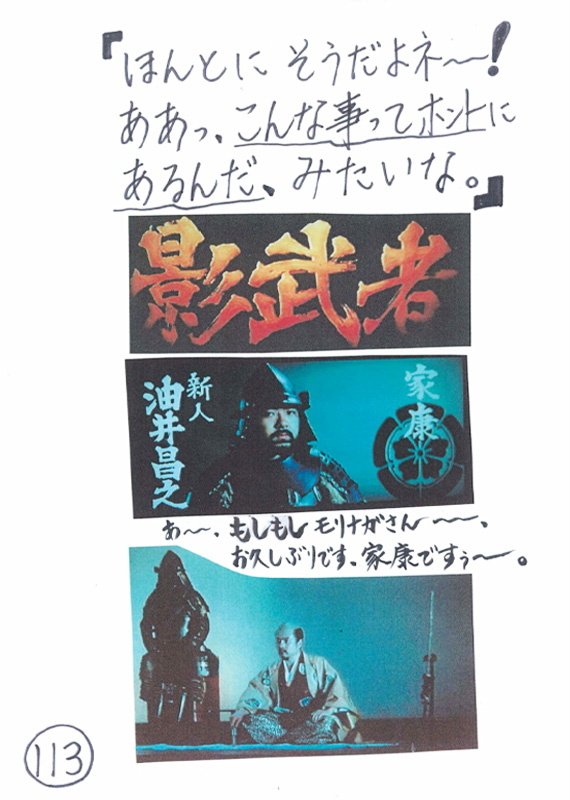 『ほんとに そうだよネ〜!
ああっ、こんな事ってホントに
あるんだ、みたいな。』
影武者
新人
油井昌之
家康
あ〜、もしもし モリナガさん 〜、
お久しぶりです、家康ですぅ〜。
113